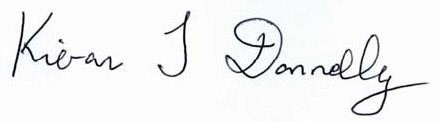 Kieran J Donnelly